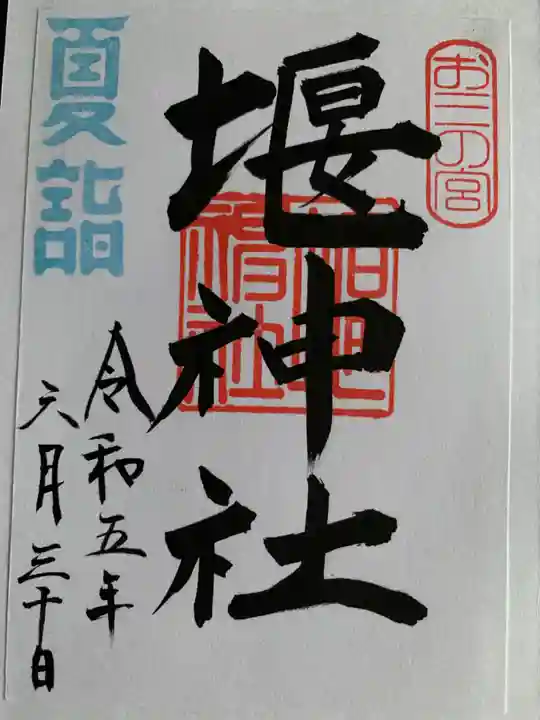 お三の宮
堰神社
令和五年
六月三十日
夏詣